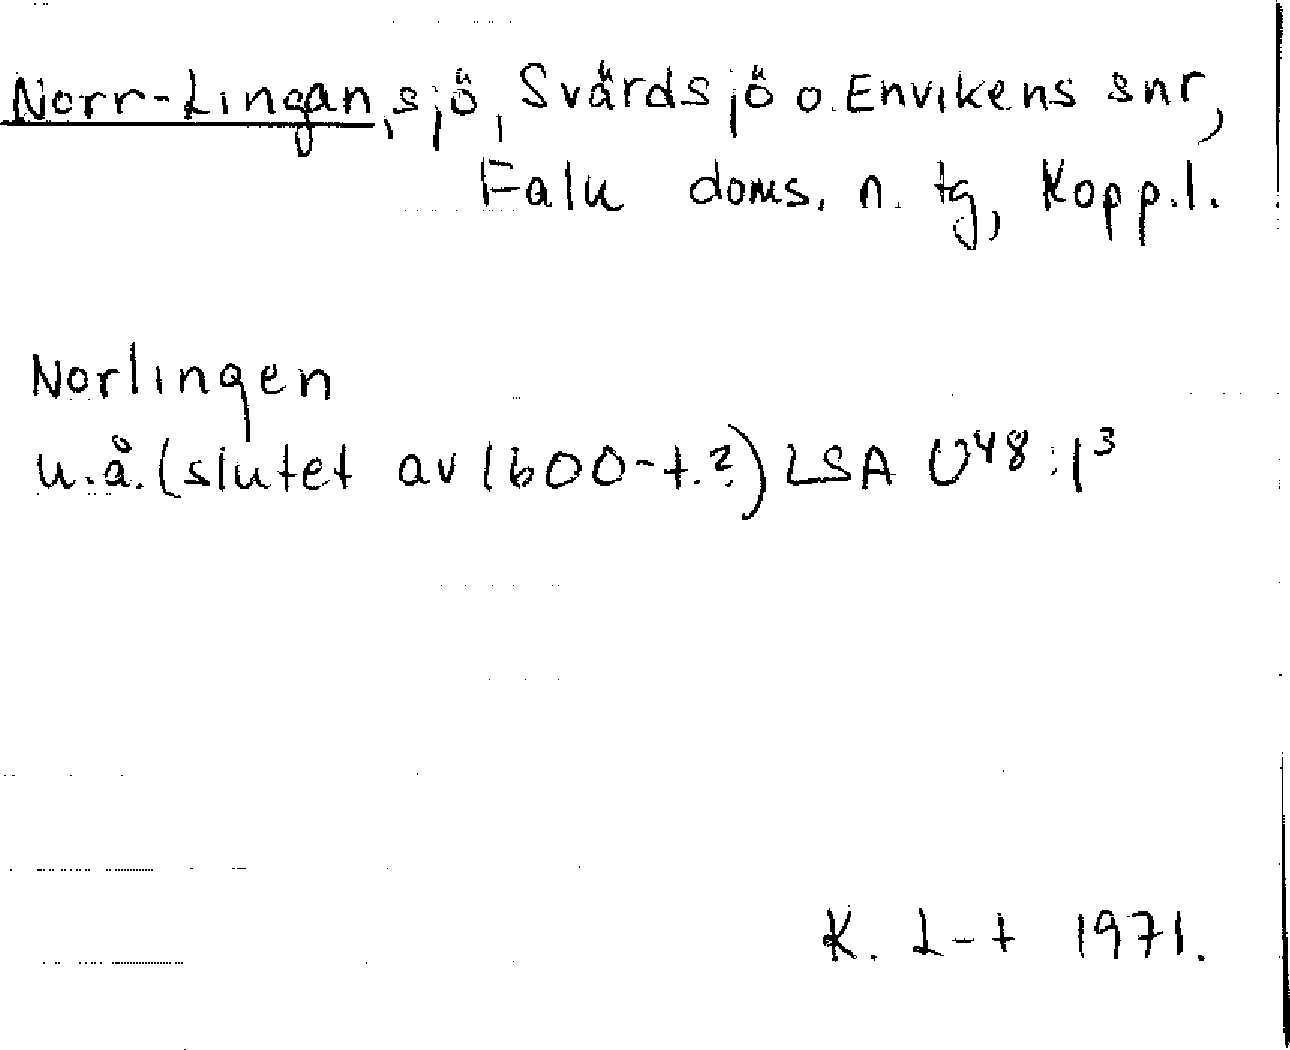 Norr-Lingan, sjö, Svärdsjö o. Envikens snr,
Falu doms. n. tg, Kopp.l.
Norlingen
u.å. (slutet av 1600-t.?) LSA U48:1³
K. L-t 1971.